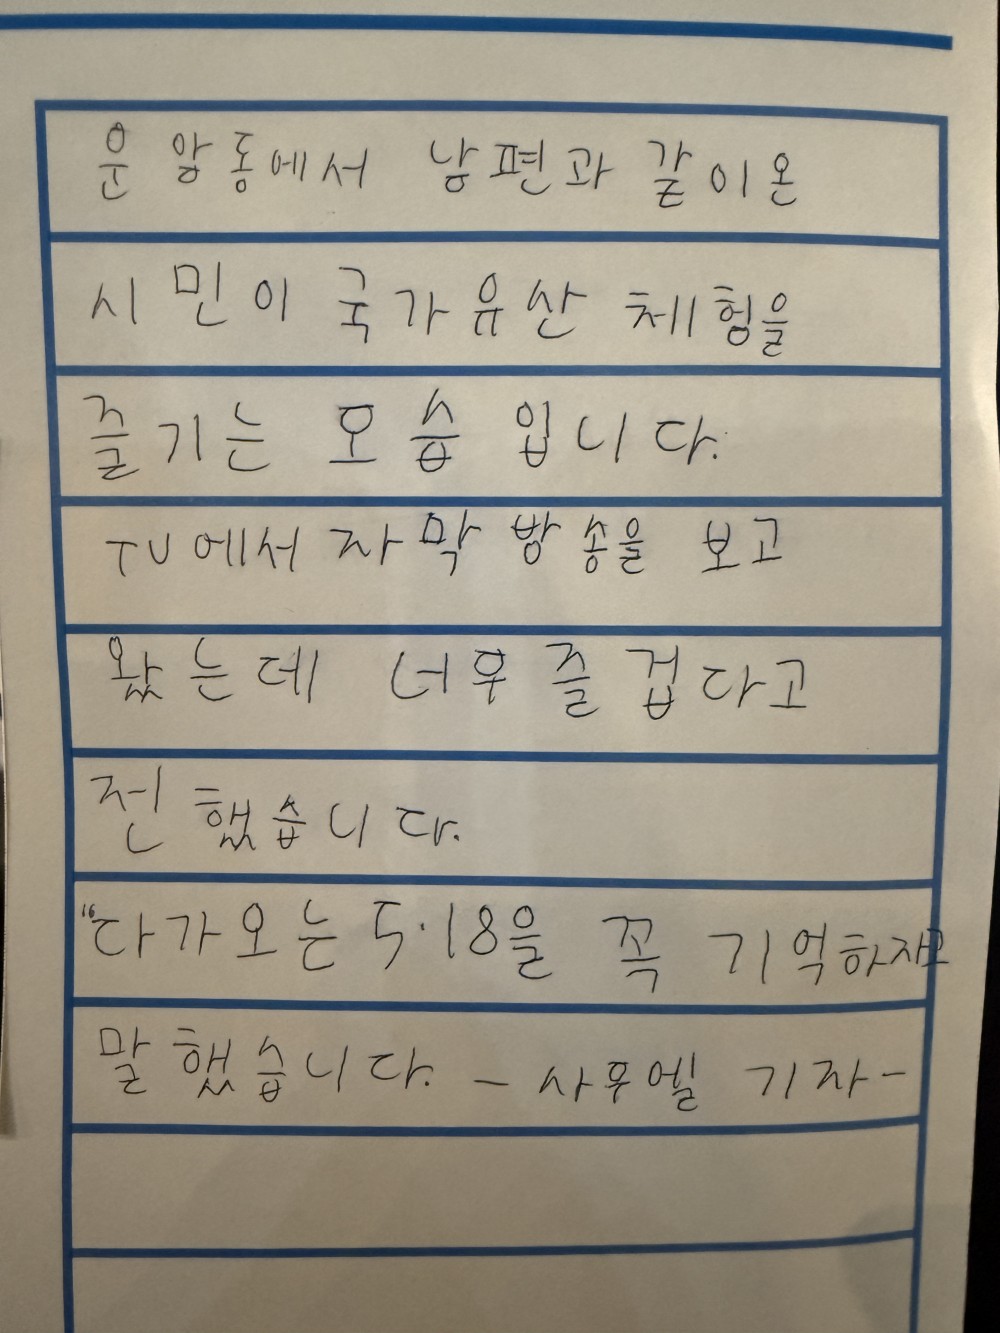 운암동에서 남편과 같이 온
시민이 국가유산 체험을
즐기는 모습입니다.
TV에서 자막 방송을 보고
왔는데 너무 즐겁다고
전했습니다.
"다가오는 5·18을 꼭 기억하자고
말했습니다. - 사무엘 기자-